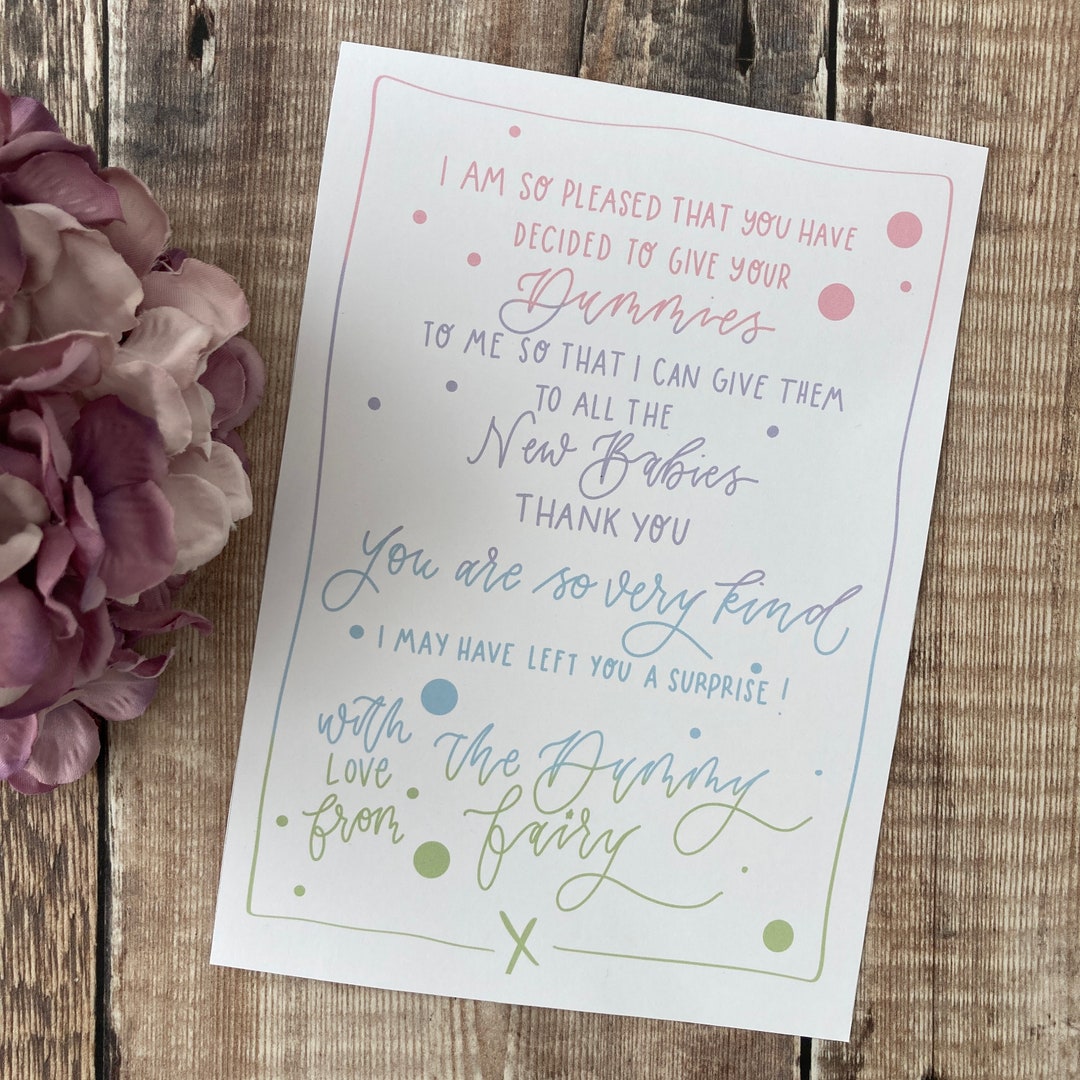 I AM SO PLEASED THAT YOU HAVE
DECIDED TO GIVE YOUR
Dummies
TO ME SO THAT I CAN GIVE THEM
TO ALL THE
New Babies
THANK YOU
You are so very kind
I MAY HAVE LEFT YOU A SURPRISE!
with
LOVE
from
The Dummy
fairy
X